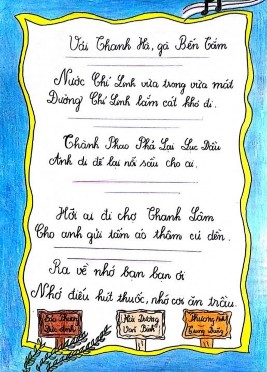 Vải Thanh Hà, gà Bến Tắm
Nước Chí Linh vừa trong vừa mát
Đường Chí Linh lắm cát khó đi.
Thành Phao Phả Lại Lục Đầu
Anh đi để lại nỗi sầu cho ai.
Hỡi ai đi chợ Thanh Lâm
Cho anh gửi tấm áo thâm cú dền.
Ra về nhớ bạn bạn ơi
Nhớ điếu hút thuốc, nhớ cơi ăn trầu.
Hải Dương